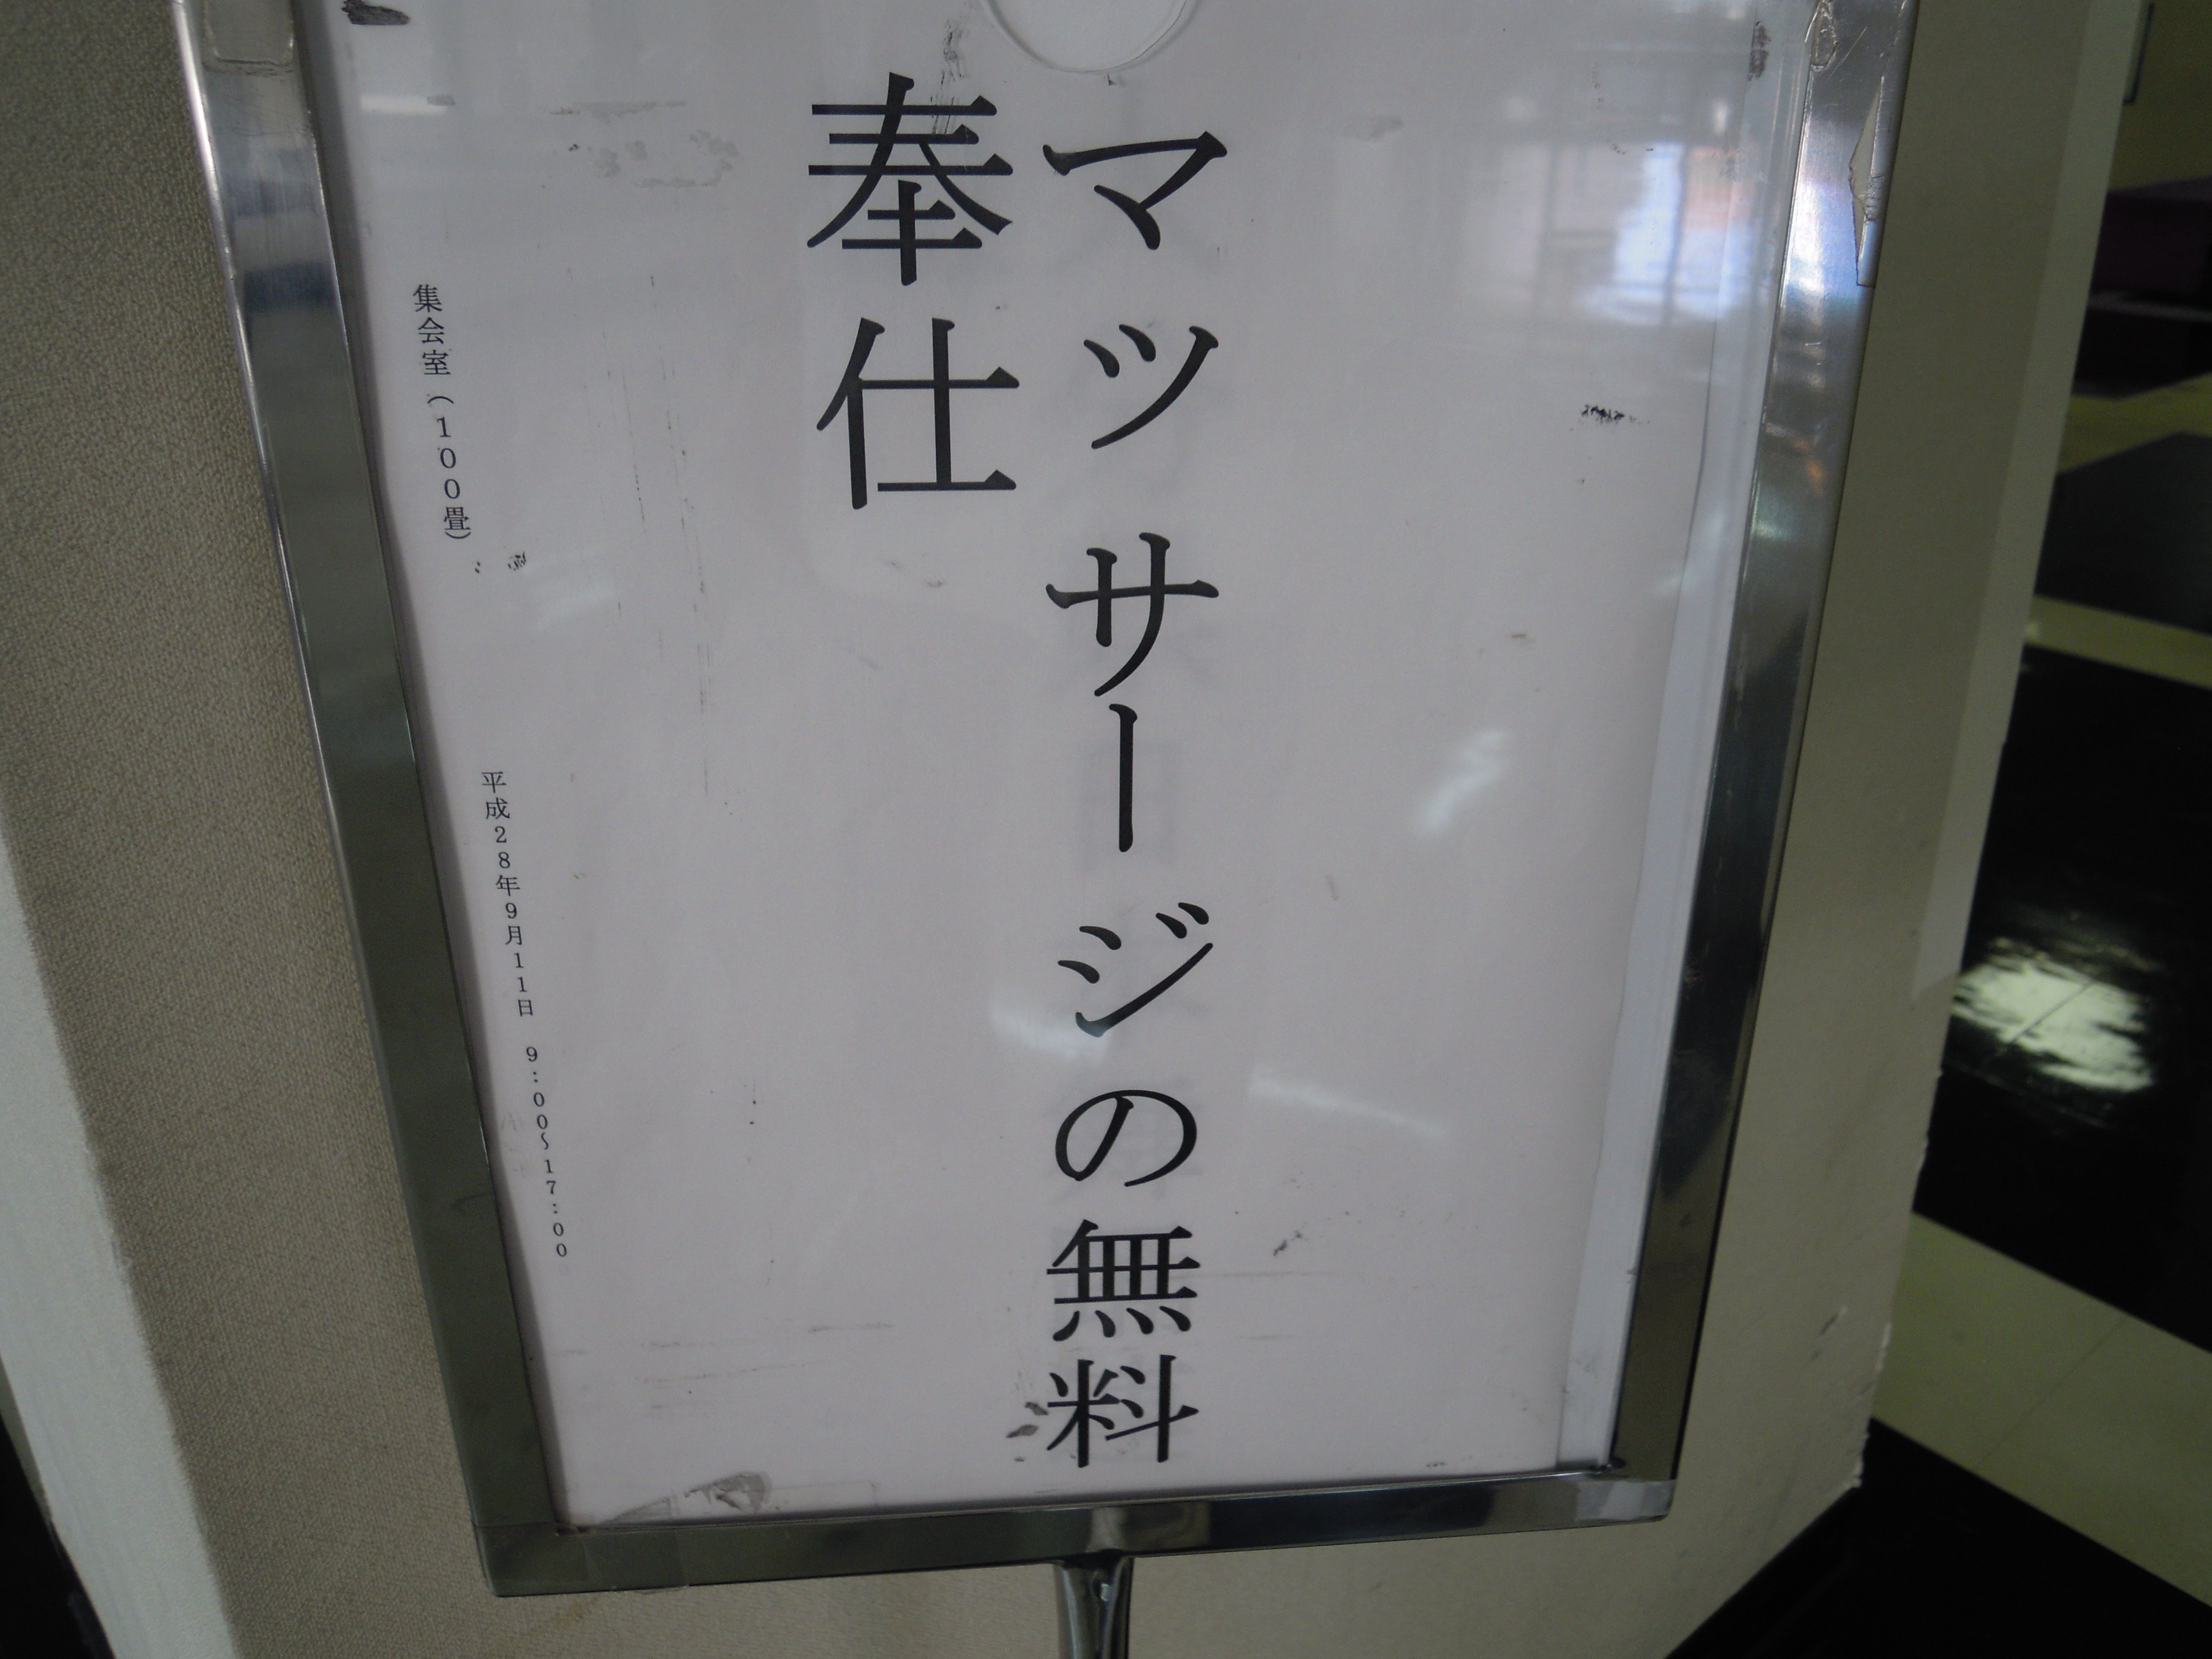 マッサージの無料
奉仕
集会室（１００畳）
平成２８年９月１１日　９：００～１７：００